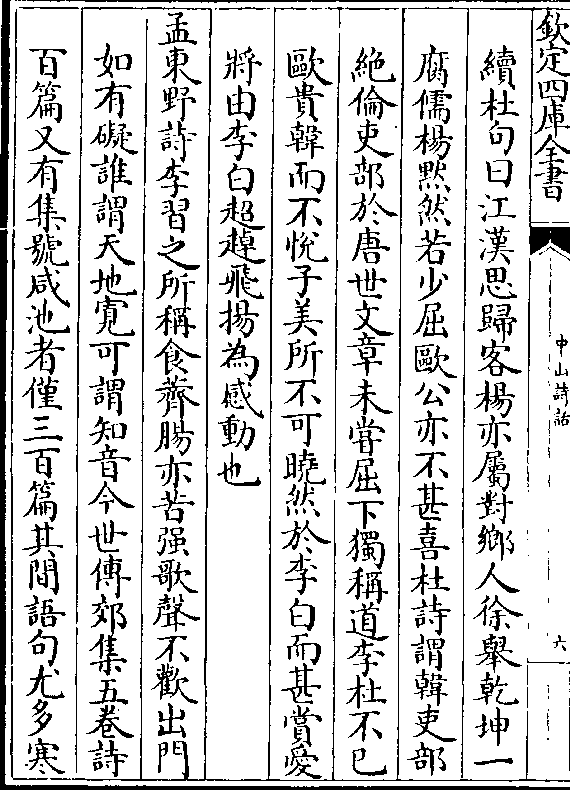 欽定四庫全書
中山詩話
六
續杜句曰江漢思歸客楊亦屬對鄉人徐舉乾坤一
腐儒楊黙然若少屈歐公亦不甚喜杜詩謂韓吏部
絶倫吏部於唐世文章未嘗屈下獨稱道李杜不已
歐貴韓而不悅子美所不可曉然於李白而甚賞愛
將由李白超趠飛揚為感動也
孟東野詩李習之所稱食薺腸亦苦强歌聲不歡出門
如有礙誰謂天地寛可謂知音今世傳郊集五卷詩
百篇又有集號咸池者僅三百篇其間語句尤多寒